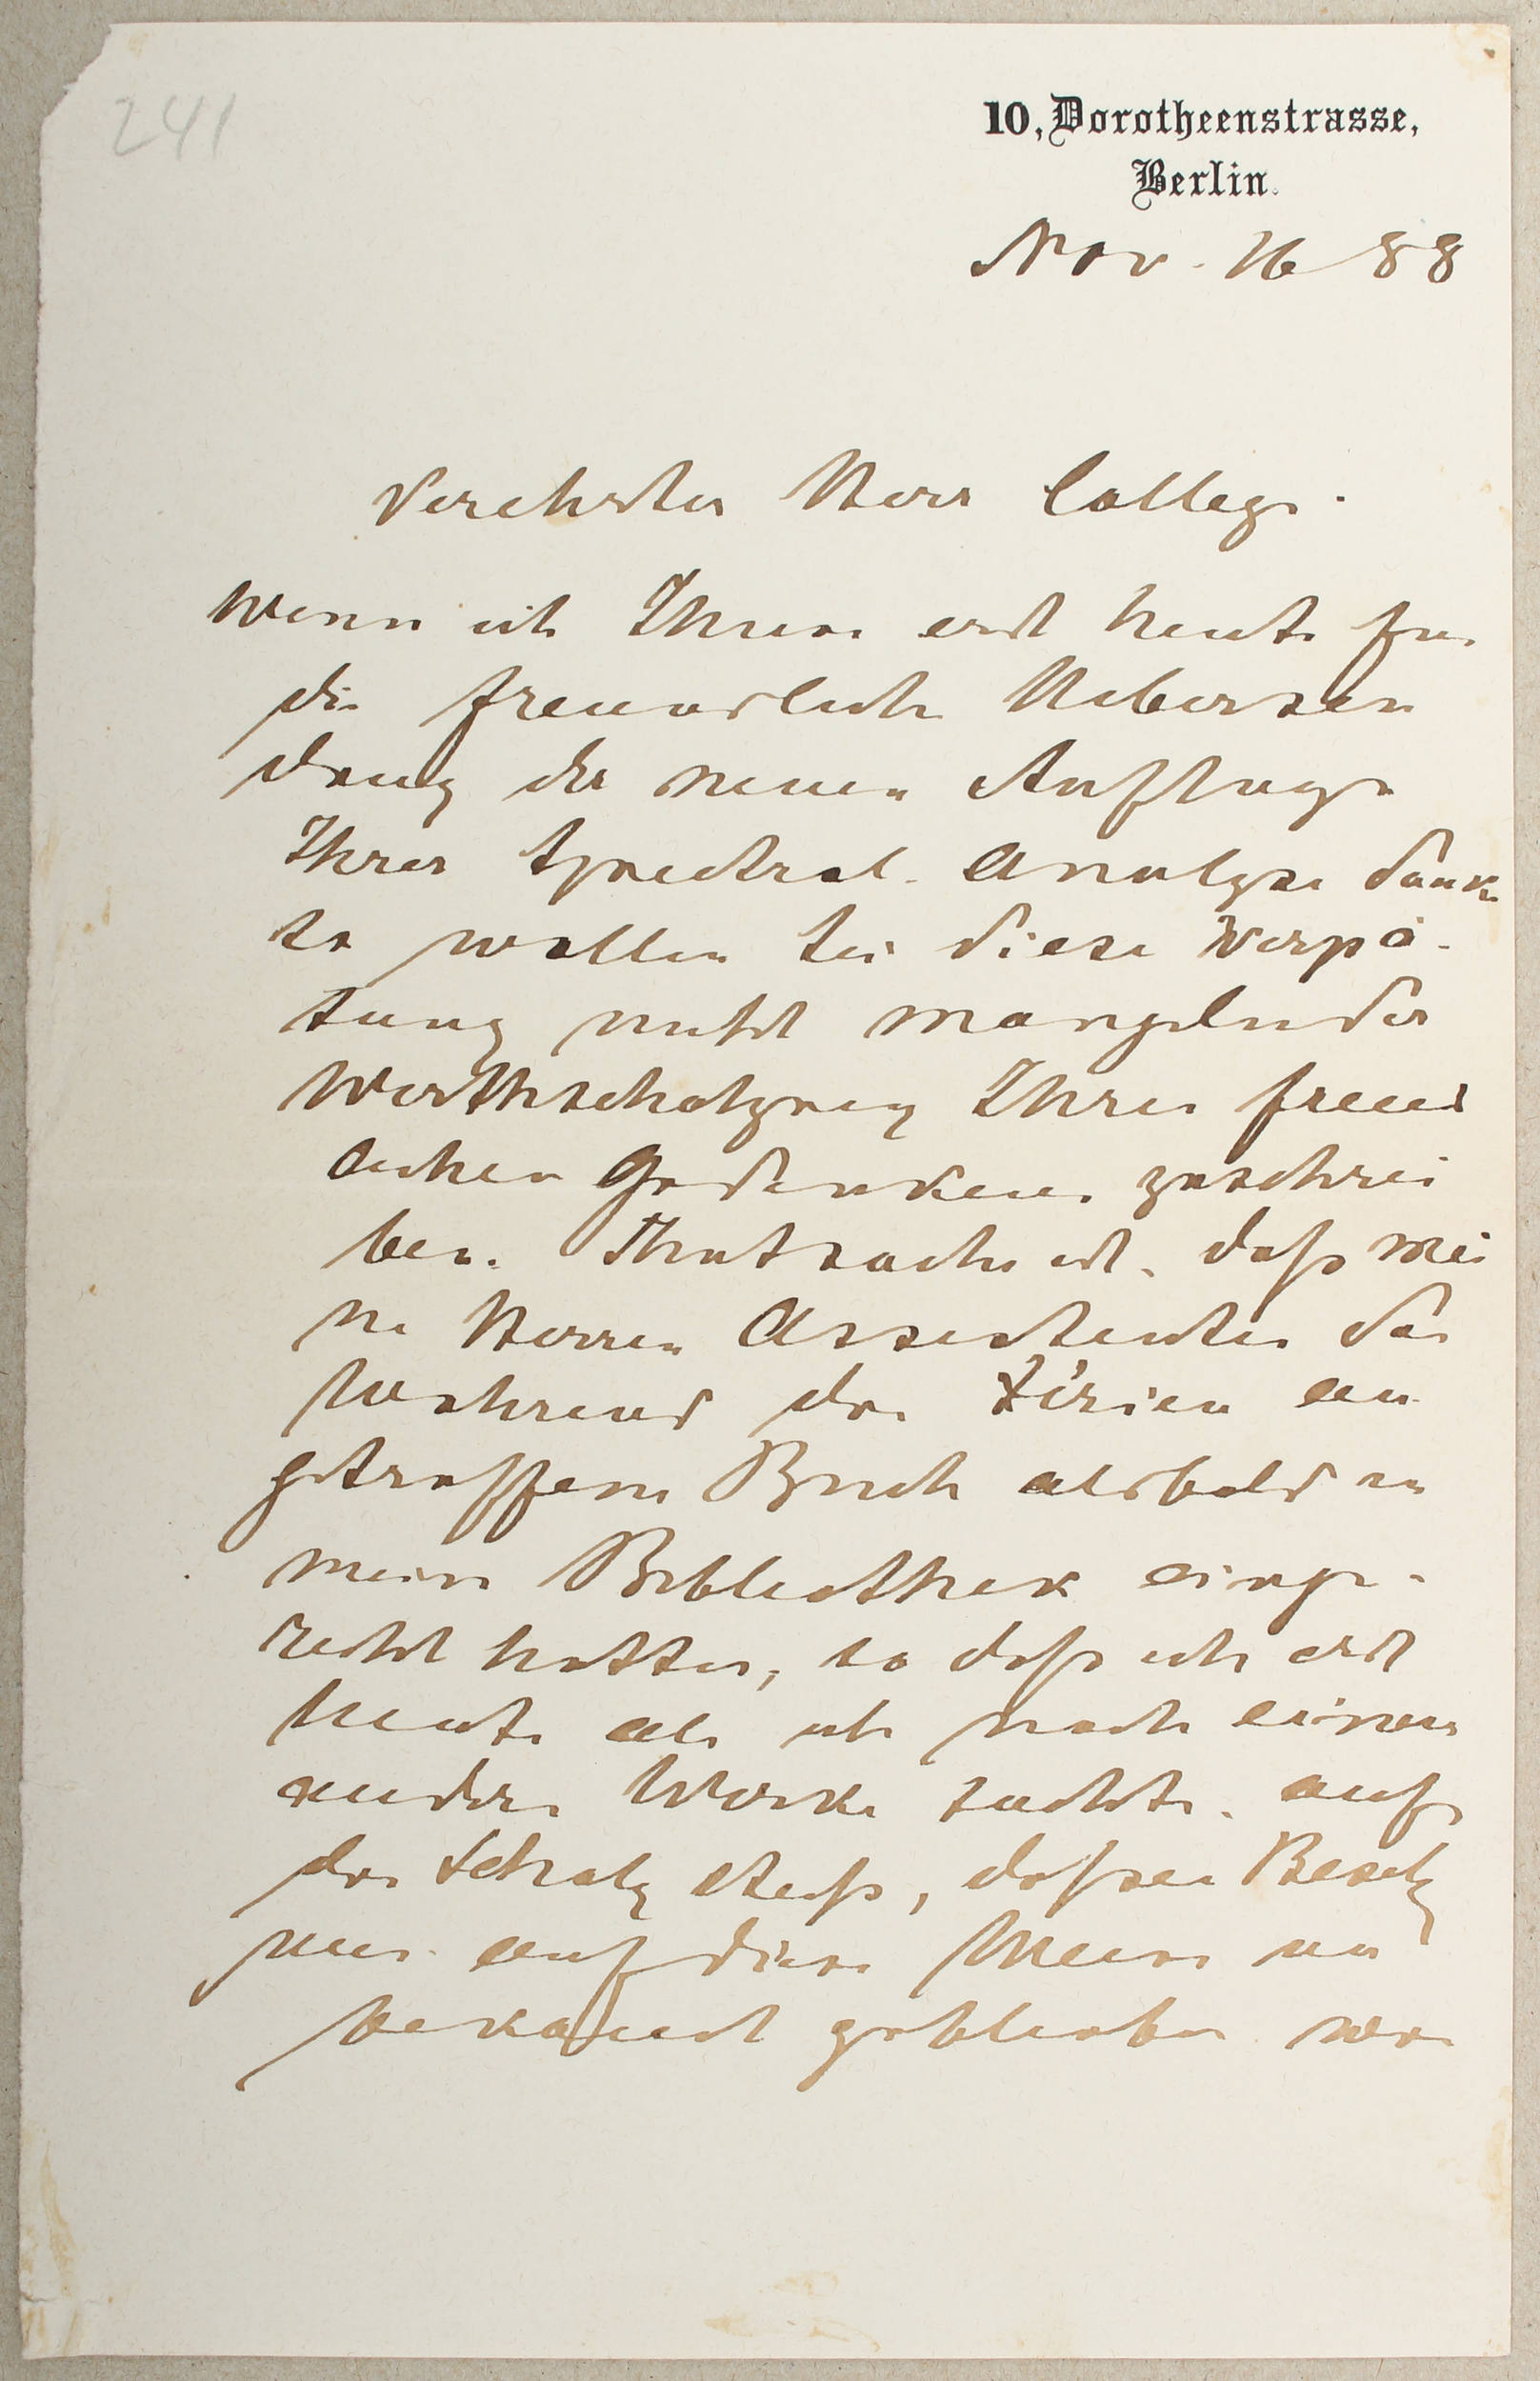 241
10, Dorotheenstrasse,
Berlin.
Nov. 16 88
Verehrter Herr College.
Wenn ich Ihnen erst heute für
die freundliche Uebersen
dung der neuen Auflage
Ihrer Spectral-Analyse danke
so wollen Sie diese Verspä-
tung nicht mangelnder
Werthschätzung Ihres freund
lichen Gedenkens zuschrei
ben. Thatsache ist, daß mei
ne Herren Assistenten das
während der Ferien ein
getroffene Buch alsbald in
meine Bibliothek einge-
reiht hatten, so daß ich erst
heute als ich nach einem
anderen Werke suchte, auf
den Schatz stieß, deßsen Besitz
mir auf diese Weise un
bekannt geblieben war